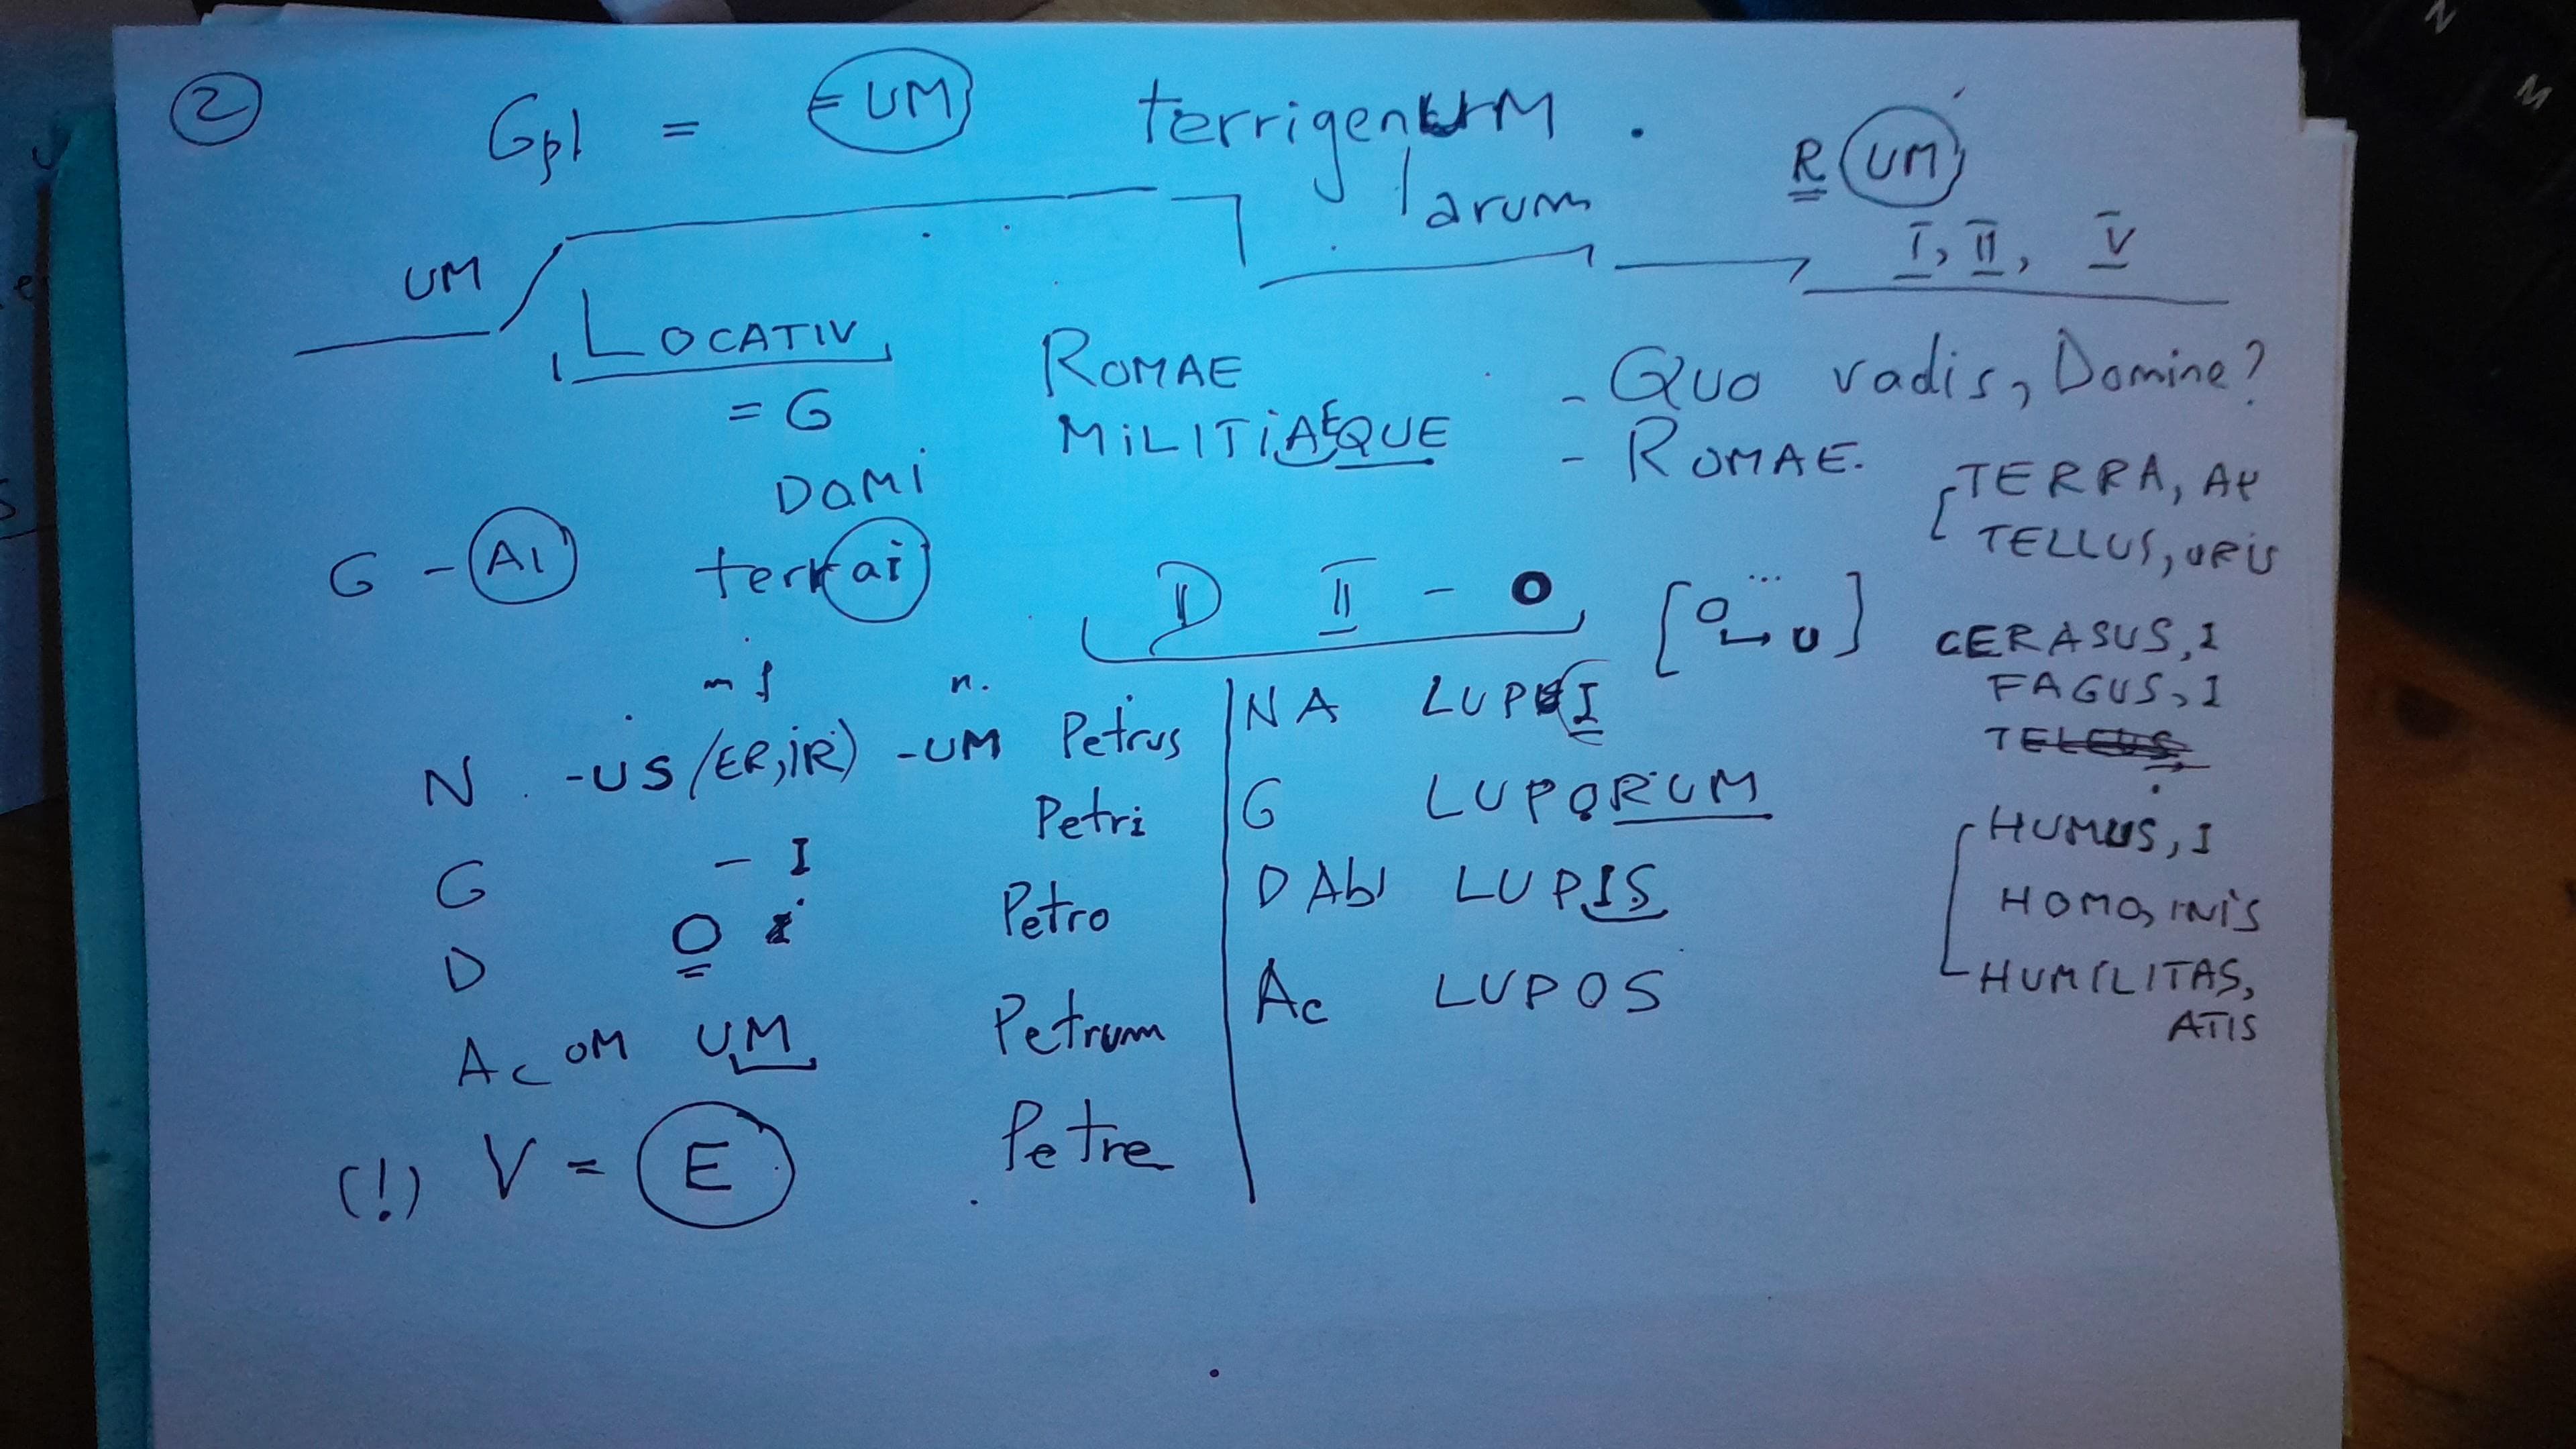 2
Gpl = -UM terrigenUM
arum
R UM
I, II, V
UM
LOCATIV
= G
DOMI
ROMAE
MILITIAEQUE
- Quo vadis, Domine?
- ROMAE.
TERRA, AE
TELLUS, URIS
G - AI terrai
D II - O [O → U]
CERASUS, I
FAGUS, I
m f n.
N -US (ER, IR) -UM Petrus
G - I Petri
D O Petro
Ac OM UM Petrum
(!) V = E Petre
N A LUPI
G LUPORUM
D Abl LUPIS
Ac LUPOS
HUMUS, I
HOMO, INIS
HUMILITAS,
ATIS